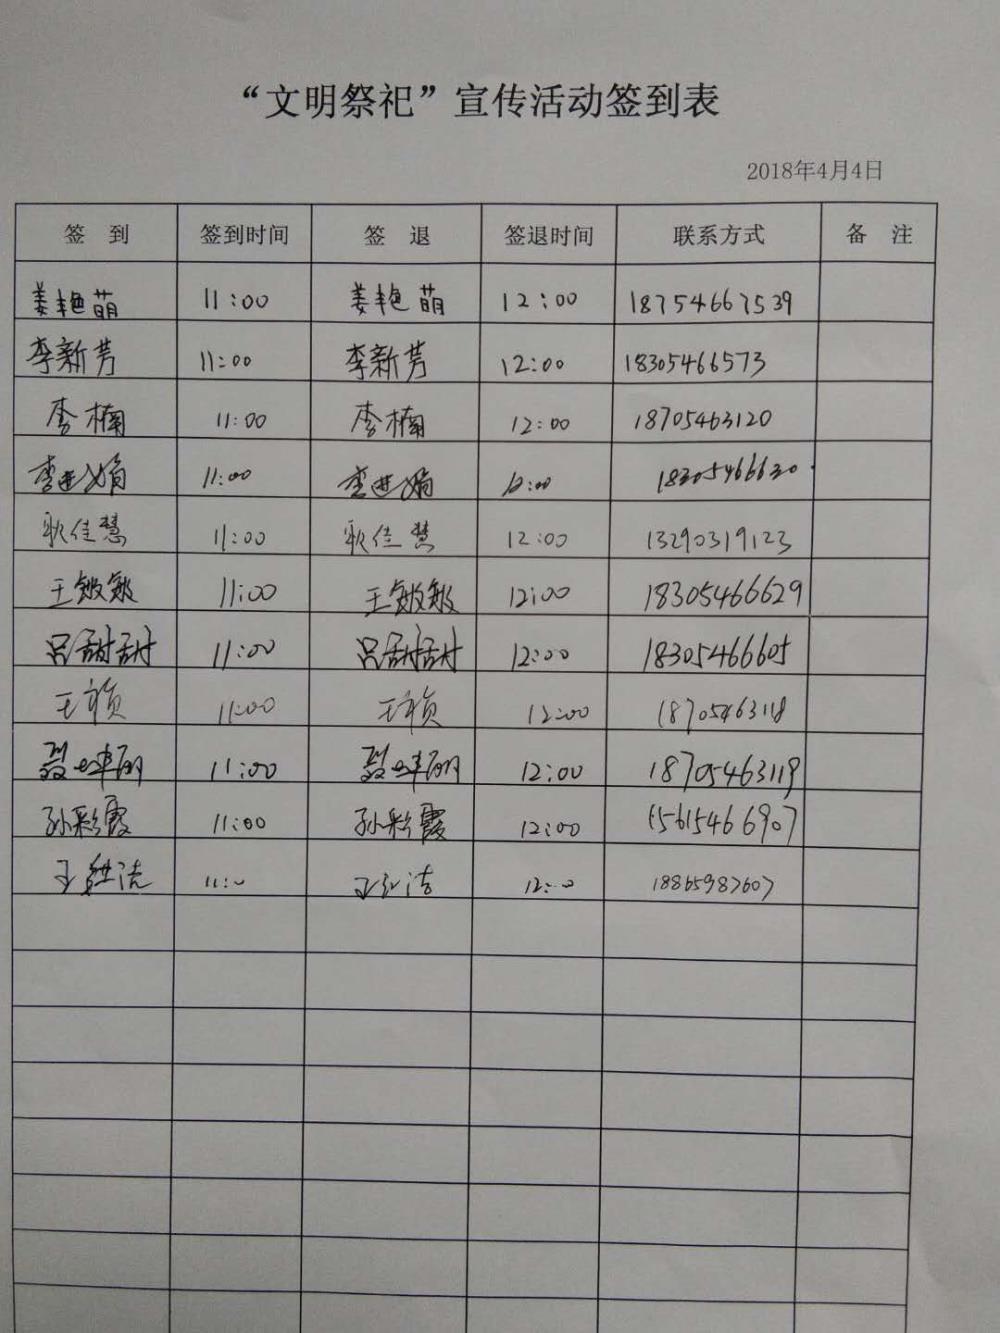 “文明祭祀”宣传活动签到表
2018年4月4日
签 到 签到时间 签 退 签退时间 联系方式 备 注
姜艳萌 11:00 姜艳萌 12:00 18754667539
李新芳 11:00 李新芳 12:00 18305466573
李楠 11:00 李楠 12:00 18705463120
李进娟 11:00 李进娟 12:00 18305466630
耿佳慧 11:00 耿佳慧 12:00 13290319123
王敏敏 11:00 王敏敏 12:00 18305466629
吕甜甜 11:00 吕甜甜 12:00 18305466605
王祯 11:00 王祯 12:00 18705463118
11:00 12:00 18705463119
孙彩霞 11:00 孙彩霞 12:00 15615466907
11:00 12:00 18865987607